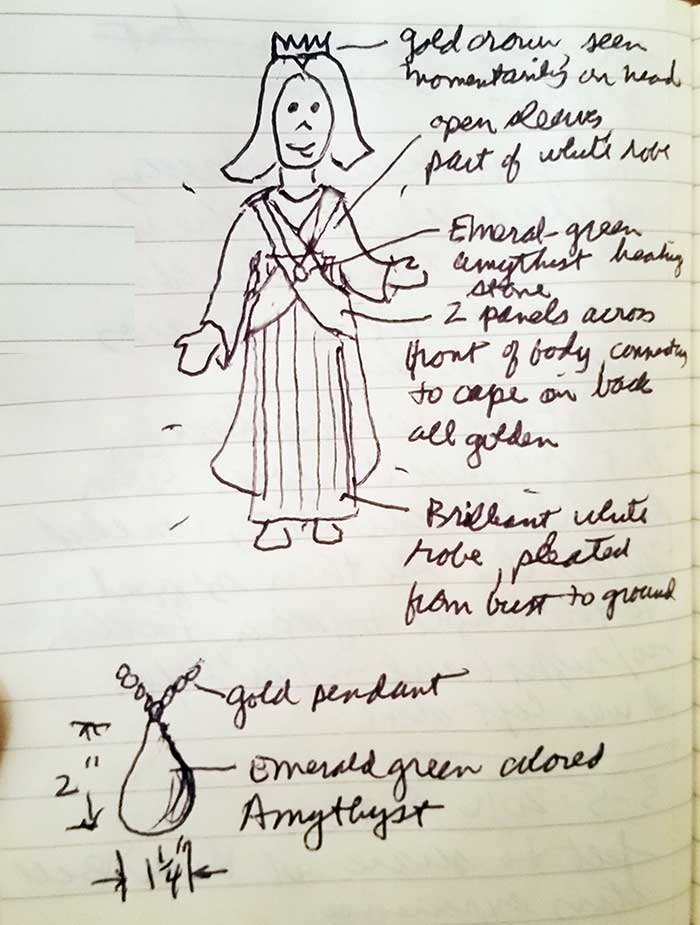 gold crown, seen
momentarily on head
open sleeves,
part of white robe
Emeral-green
amythist healing
stone
2 panels across
front of body, connecting
to cape on back
all golden
Brilliant white
robe, pleated
from bust to ground
gold pendant
2"
Emerald green colored
Amythyst
1 1/4"